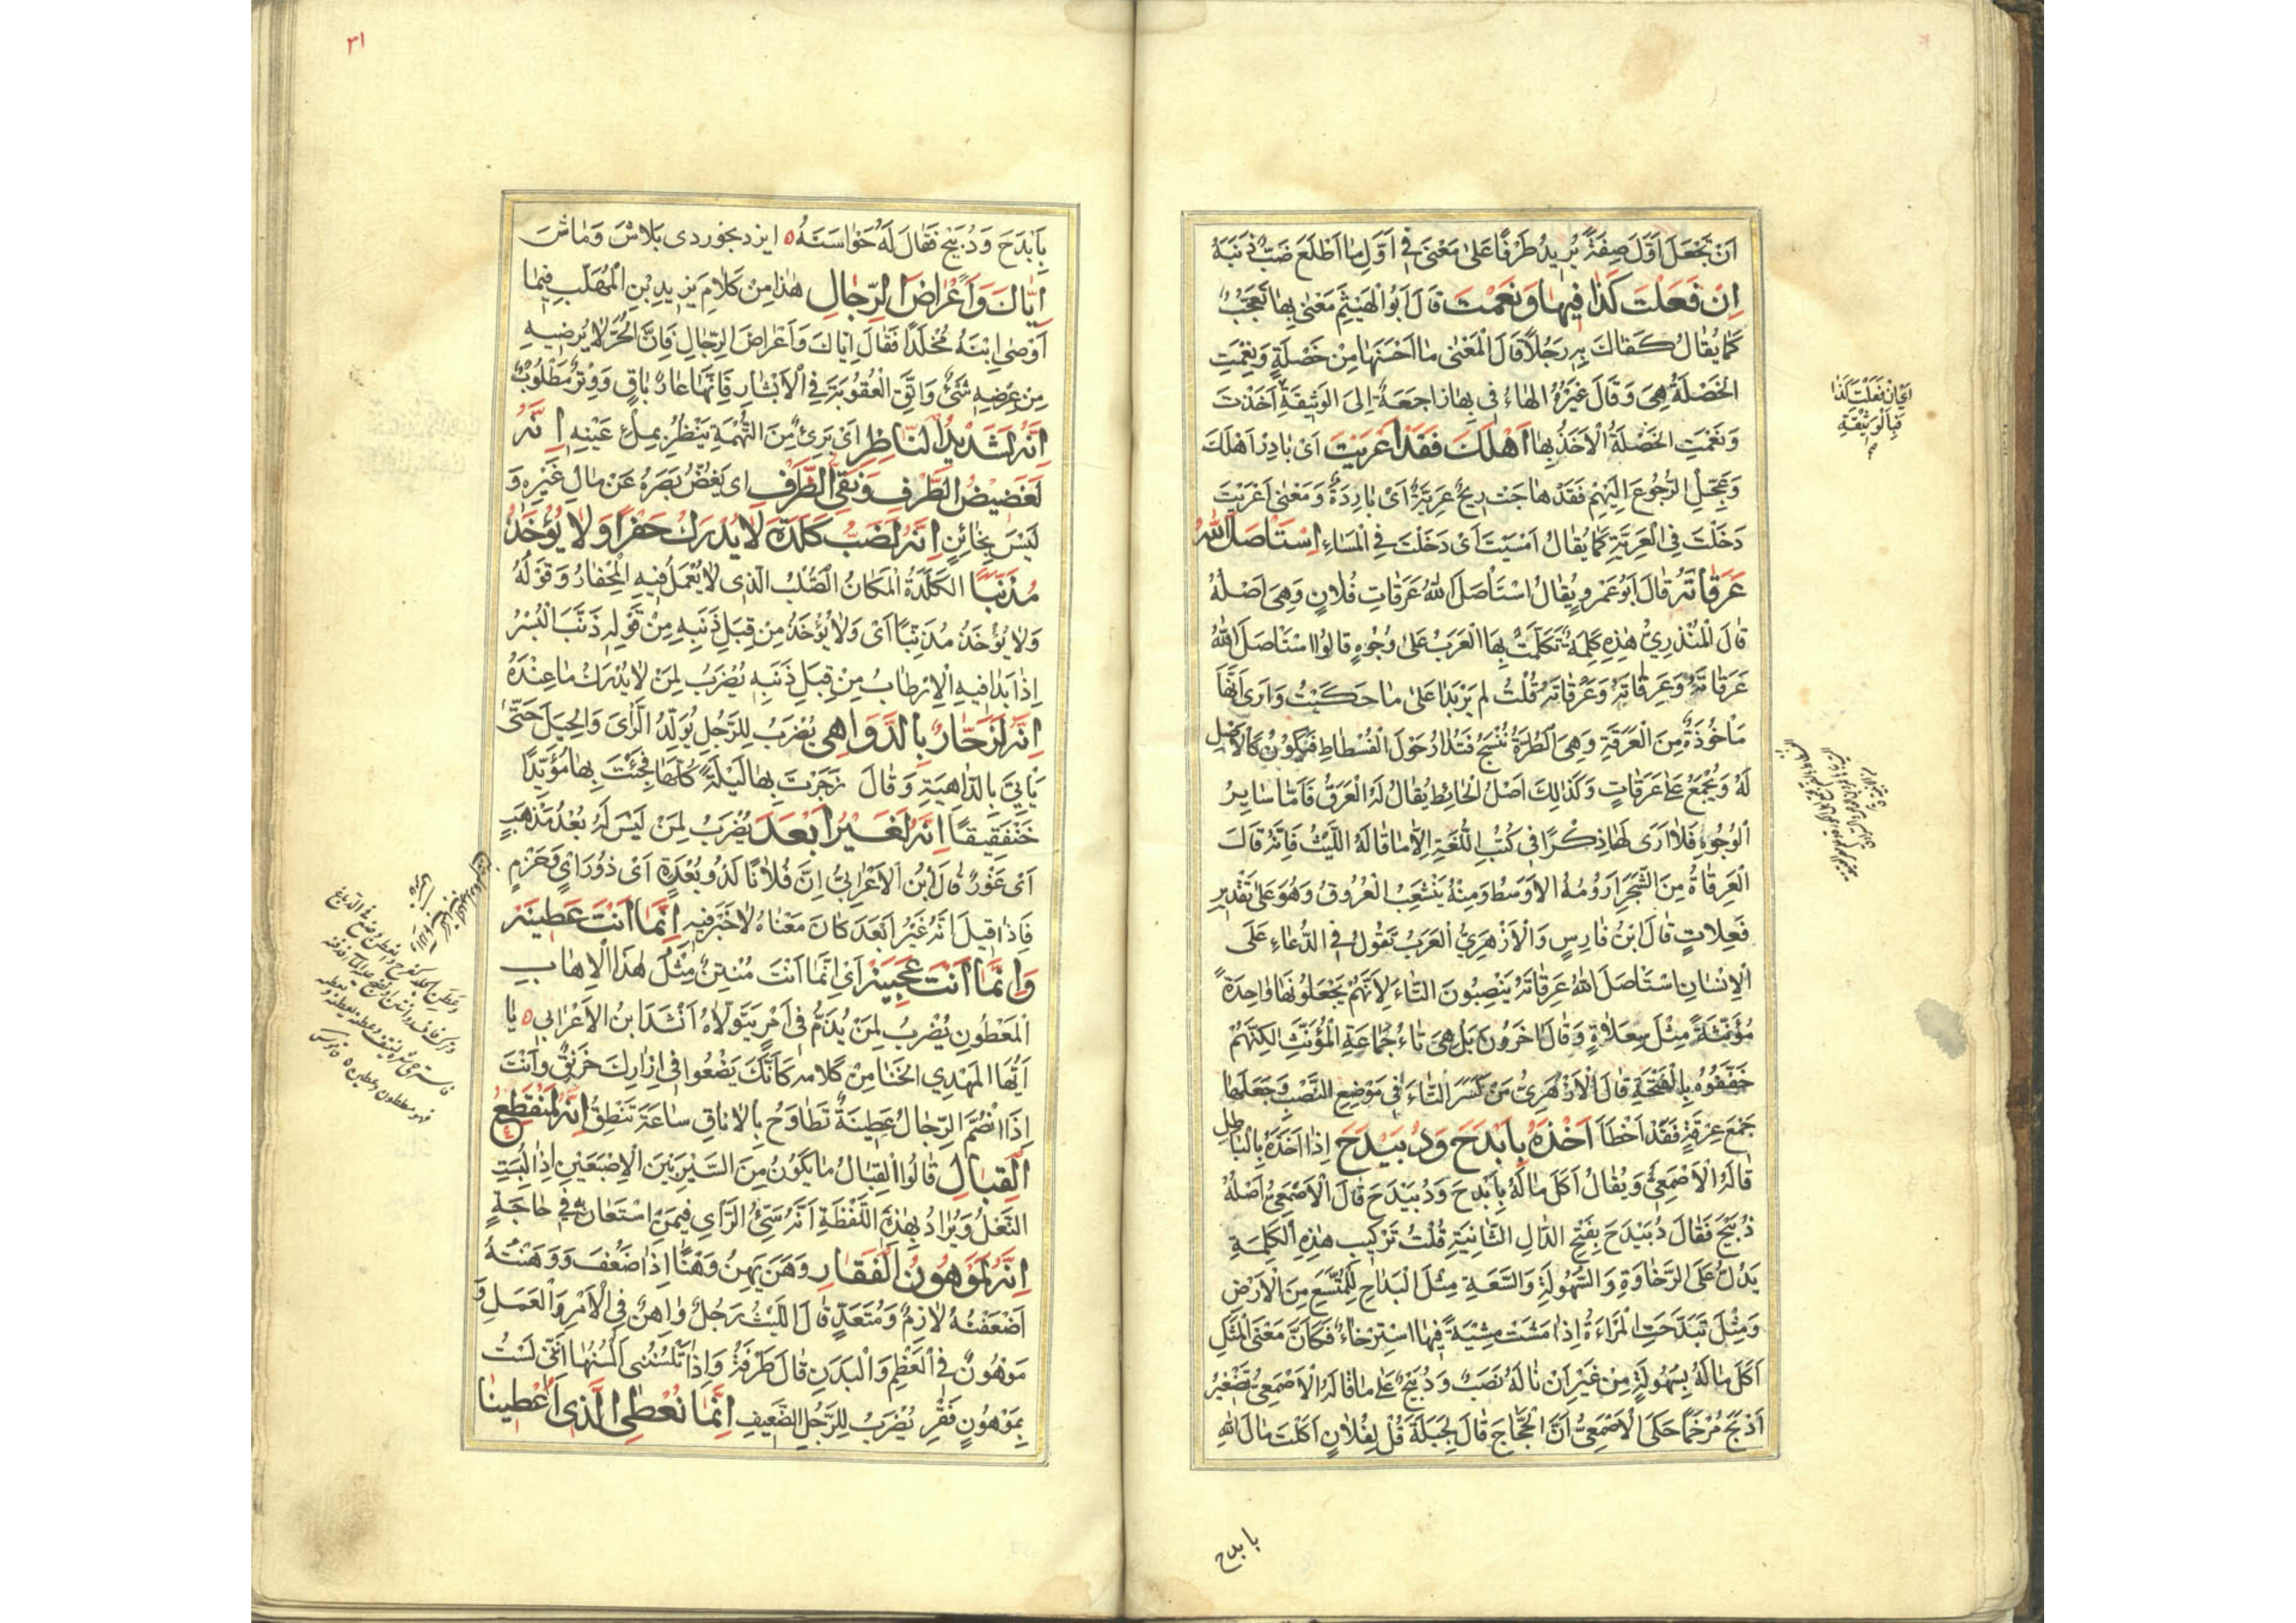 اَنْ تَجْعَلَ اَوَّلَ صِفَةً يُرِيدُ ظَرْفًا عَلىٰ مَعْنىٰ فِي اَوَّلِ مٰا اَطْلَعَ ضَبٌّ ذَنَبَهُ
اِنْ فَعَلْتَ كَذٰا فَبِهٰا وَنِعْمَتْ قٰالَ اَبُو الْهَيْثَمِ مَعْنىٰ بِهٰا تَعَجُّبٌ
كَمٰا يُقٰالُ كَفٰاكَ بِهِ رَجُلًا قٰالَ الْمَعْنىٰ مٰا اَحْسَنَهٰا مِنْ خَصْلَةٍ وَنِعْمَتِ
الْخَصْلَةُ هِيَ وَقٰالَ غَيْرُهُ الهٰاءُ فِي بِهٰا رٰاجِعَةٌ اِلىَ الْوَثِيقَةِ اَخَذْتَ
وَنِعْمَتِ الْخَصْلَةُ الْاَخْذُ بِهٰا اَهْلَكَ فَقَدْ اَعْرَيْتَ اَيْ بٰادِرْ اَهْلَكَ
وَعَجِّلِ الرُّجُوعَ اِلَيْهِمْ فَقَدْ هٰاجَتْ رِيحٌ عَرِيَّةٌ اَيْ بٰارِدَةٌ وَمَعْنىٰ اَعْرَيْتَ
دَخَلْتَ فِي الْعَرِيَّةِ كَمٰا يُقٰالُ اَمْسَيْتَ اَيْ دَخَلْتَ فِي الْمَسٰاءِ اِسْتَأْصَلَ اللّٰهُ
عَرَقٰاتَهُ قٰالَ اَبُو عَمْرٍو يُقٰالُ اسْتَأْصَلَ اللّٰهُ عَرَقٰاتِ فُلٰانٍ وَهِيَ اَصْلُهُ
قٰالَ الْمُنْذِرِيُّ هٰذِهِ كَلِمَةٌ تَكَلَّمَتْ بِهَا الْعَرَبُ عَلىٰ وُجُوهٍ قٰالُوا اسْتَأْصَلَ اللّٰهُ
عَرَقٰاتَهُ وَعَرِقٰاتِهِ وَعَرْقٰاتَهُ قُلْتُ لم يَزِيدٰا عَلىٰ مٰا حَكَيْتُ وَاَرىٰ اَنَّهٰا
مَأْخُوذَةٌ مِنَ الْعَرَقَةِ وَهِيَ الطُّرَّةُ تُنْسَجُ فَتُدٰارُ حَوْلَ الْفُسْطٰاطِ فَيَكُونُ كَالْاَصْلِ
لَهُ وَيُجْمَعُ عَلىٰ عَرَقٰاتٍ وَكَذٰلِكَ اَصْلُ الْحٰائِطِ يُقٰالُ لَهُ الْعَرَقُ فَاَمّٰا سٰايِرُ
الْوُجُوهِ فَلٰا اَرىٰ لَهٰا ذِكْرًا فِي كُتُبِ اللُّغَةِ اِلّٰا مٰا قٰالَهُ اللَّيْثُ فَاِنَّهُ قٰالَ
الْعَرِقٰاةُ مِنَ الشَّجَرِ اَرُومُهُ الْاَوْسَطُ وَمِنْهُ يَنْشَعِبُ الْعُرُوقُ وَهُوَ عَلىٰ تَقْدِيرِ
فَعِلٰاتٍ قٰالَ ابْنُ فٰارِسٍ وَالْاَزْهَرِيُّ الْعَرَبُ تَقُولُ فِي الدُّعٰاءِ عَلَى
الْاِنْسٰانِ اسْتَأْصَلَ اللّٰهُ عَرِقٰاتَهُ يَنْصِبُونَ التّٰاءَ لِاَنَّهُمْ يَجْعَلُونَهٰا وٰاحِدَةً
مُؤَنَّثَةً مِثْلَ سِعْلٰاةٍ وَقٰالَ اٰخَرُونَ بَلْ هِيَ تٰاءُ جَمٰاعَةِ الْمُؤَنَّثِ لٰكِنَّهُمْ
خَفَّفُوهُ بِالْفَتْحَةِ قٰالَ الْاَزْهَرِيُّ مَنْ كَسَرَ التّٰاءَ فِي مَوْضِعِ النَّصْبِ وَجَعَلَهٰا
جَمْعَ عِرْقَةٍ فَقَدْ اَخْطَأَ اَخَذَهُ بِاَبْدَحَ وَدُبَيْدَحَ اِذٰا اَخَذَهُ بِالْبٰاطِلِ
قٰالَهُ الْاَصْمَعِيُّ وَيُقٰالُ اَكَلَ مٰالَهُ بِاَبْدَحَ وَدُبَيْدَحَ قٰالَ الْاَصْمَعِيُّ اَصْلُهُ
دُبَيْحٌ فَقٰالَ دُبَيْدَحَ بِفَتْحِ الدّٰالِ الثّٰانِيَةِ قُلْتُ تَرْكِيبُ هٰذِهِ الْكَلِمَةِ
يَدُلُّ عَلَى الرَّخٰاوَةِ وَالسُّهُولَةِ وَالسَّعَةِ مِثْلَ الْبَدٰاحِ لِلْمُتَّسَعِ مِنَ الْاَرْضِ
وَمِثْلَ تَبَدَّحَتِ الْمَرْاَةُ اِذٰا مَشَتْ مِشْيَةً فِيهَا اسْتِرْخٰاءٌ فَكَاَنَّ مَعْنَى الْمَثَلِ
اَكَلَ مٰالَهُ بِسُهُولَةٍ مِنْ غَيْرِ اَنْ نٰالَهُ نَصَبٌ وَدُبَيْحٌ عَلىٰ مٰا قٰالَهُ الْاَصْمَعِيُّ تَصْغِيرُ
اَدْبَحَ مُرَخَّمًا حَكَى الْاَصْمَعِيُّ اَنَّ الْحَجّٰاجَ قٰالَ لِجَبَلَةَ قُلْ لِفُلٰانٍ اَكَلْتَ مٰالَ اللّٰهِ
اَيْ اِنْ فَعَلْتَ كَذٰا
فَبِالْوَثِيقَةِ
بابدح
٣١
بِاَبْدَحَ وَدُبَيْحٍ فَقٰالَ لَهُ خُوٰاسْتَهٔ ايزد بخوردى بلاش وماش
اِيّٰاكَ وَاَعْرٰاضَ الرِّجٰالِ هٰذٰا مِنْ كَلٰامِ يَزِيدِ بْنِ الْمُهَلَّبِ فِيمٰا
اَوْصىٰ اِبْنَهُ مُخَلَّدًا فَقٰالَ اِيّٰاكَ وَاَعْرٰاضَ الرِّجٰالِ فَاِنَّ الْحُرَّ لٰا يُرْضِيهِ
مِنْ عِرْضِهِ شَيْءٌ وَاتَّقِ الْعُقُوبَةَ فِي الْاَبْشٰارِ فَاِنَّهٰا عٰارٌ بٰاقٍ وَوِتْرٌ مَطْلُوبٌ
اِنَّهُ لَشَدِيدُ النّٰاظِرِ اَيْ بَرِيءٌ مِنَ التُّهْمَةِ يَنْظُرُ بِمِلْءِ عَيْنِهِ اِنَّهُ
لَغَضِيضُ الطَّرْفِ وَنَقِيُّ الطَّرْفِ اى يَغُضُّ بَصَرَهُ عَنْ مٰالِ غَيْرِهِ وَ
لَيْسَ بِخٰائِنٍ اِنَّهُ لَضَبُّ كَلَدَةٍ لٰا يُدْرَكُ حَفْرًا وَلٰا يُؤْخَذُ
مُذَنِّبًا الكَلَدَةُ الْمَكٰانُ الصُّلْبُ الَّذِي لٰا يَعْمَلُ فِيهِ الْمِحْفٰارُ وَقَوْلُهُ
وَلٰا يُؤْخَذُ مُذَنِّبًا اَيْ وَلٰا يُؤْخَذُ مِنْ قِبَلِ ذَنَبِهِ مِنْ قَوْلِهِ ذَنَّبَ الْبُسْرُ
اِذٰا بَدٰا فِيهِ الْاِرْطٰابُ مِنْ قِبَلِ ذَنَبِهِ يُضْرَبُ لِمَنْ لٰا يُدْرَكُ مٰا عِنْدَهُ
اِنَّهُ لَزَحّٰارٌ بِالدَّوٰاهِي يُضْرَبُ لِلرَّجُلِ يُوَلِّدُ الرَّأْيَ وَالْحِيَلَ حَتّىٰ
يَأْتِيَ بِالدّٰاهِيَةِ وَقٰالَ زَحَرْتَ بِهٰا لَيْلَةً كُلَّهٰا فَجِئْتَ بِهٰا مُؤْيِدًا
خَنْفَقِيقًا اِنَّهُ لَغَيْرُ اَبْعَدَ يُضْرَبُ لِمَنْ لَيْسَ لَهُ بُعْدُ مَذْهَبٍ
اَيْ غَوْرٌ قٰالَ ابْنُ الْاَعْرٰابِيِّ اِنَّ فُلٰانًا لَذُو بُعْدَةٍ اَيْ ذُو رَأْيٍ وَحَزْمٍ
فَاِذٰا قِيلَ اَنَّهُ غَيْرُ اَبْعَدَ كٰانَ مَعْنٰاهُ لٰا خَيْرَ فِيهِ اِنَّمٰا اَنْتَ عَطِينَةٌ
وَاِنَّمٰا اَنْتَ عَجِينَةٌ اَيْ اِنَّمٰا اَنْتَ مُنْتِنٌ مِثْلُ هٰذَا الْاِهٰابِ
الْمَعْطُونِ يُضْرَبُ لِمَنْ يُذَمُّ فِي اَمْرٍ يَتَوَلّٰاهُ اَنْشَدَ ابنُ الاَعْرٰابي يٰا
اَيُّهَا الْمَهْدِي الْخَنٰا مِنْ كَلٰامِهِ كَاَنَّكَ يَضْغُو فِي اِزٰارِكَ خِرْنِقٌ وَاَنْتَ
اِذَا انْضَمَّ الرِّجٰالُ عَطِينَةٌ تَطٰاوَحُ بِالْاٰنٰاقِ سٰاعَةَ تَنْطِقُ اِنَّهُ لَمُنْقَطِعُ
الْقِبٰالِ قٰالُوا الْقِبٰالُ مٰا يَكُونُ مِنَ السَّيْرِ بَيْنَ الْاِصْبَعَيْنِ اِذٰا لُبِسَتِ
النَّعْلُ وَيُرٰادُ بِهٰذِهِ اللَّفْظَةِ اَنَّهُ سَيِّئُ الرَّأْيِ فِيمَنِ اسْتَعٰانَ بِهِ فِي حٰاجَةٍ
اِنَّهُ لَمَوْهُونُ الْفَقٰارِ وَهَنَ يَهِنُ وَهْنًا اِذٰا ضَعُفَ وَوَهَنْتُهُ
اَضْعَفْتُهُ لٰازِمٌ وَمُتَعَدٍّ قٰالَ اللَّيْثُ رَجُلٌ وٰاهِنٌ فِي الْاَمْرِ وَالْعَمَلِ وَ
مَوْهُونٌ فِي الْعَظْمِ وَالْبَدَنِ قٰالَ طَرَفَةُ وَاِذٰا تَلْسُنُنِي اَلْسُنُهٰا اِنَّنِي لَسْتُ
بِمَوْهُونٍ فَقِرٍ يُضْرَبُ لِلرَّجُلِ الضَّعِيفِ اِنَّمٰا نُعْطِي الَّذِي اُعْطِينٰا